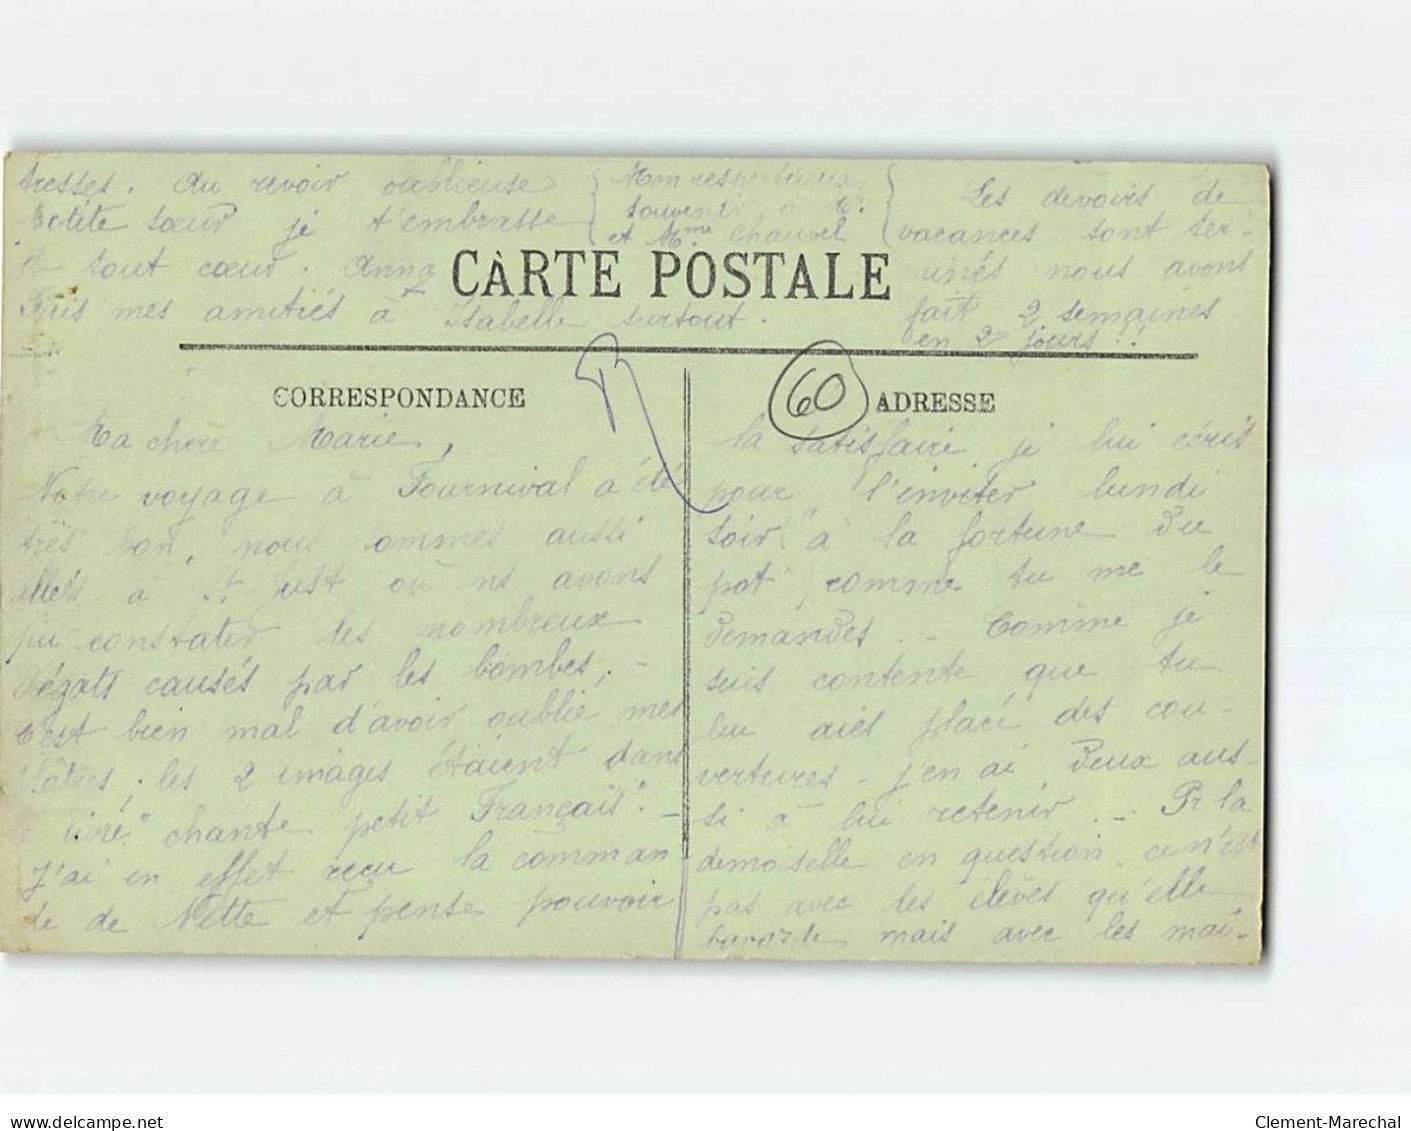 tresses. Au revoir oublieuse
petite sœur je t'embrasse
de tout cœur. Anna
Fais mes amitiés à Isabelle surtout.
Mon respectueux
souvenir à M.
et Mme Chauvel
Les devoirs de
vacances sont ter-
minés nous avons
fait 2 semaines
en 2 jours !!
CARTE POSTALE
CORRESPONDANCE
60
ADRESSE
Ma chère Marie,
Notre voyage à Fournival a été
très bon, nous sommes aussi
allés à St Just où ns avons
pu constater les nombreux
dégats causés par les bombes, -
C'est bien mal d'avoir oublié mes
les 2 images étaient dans
livre "chante petit Français". -
J'ai en effet reçu la comman
de de Nette et pense pouvoir
la satisfaire je lui écris
pour l'inviter lundi
soir ("à la fortune du
pot") comme tu me le
demandes. - Comme je
suis contente que tu
lui aies placé des cou-
vertures - j'en ai deux aus-
si à lui retenir. - Pr la
demoiselle en question ce n'est
pas avec les élèves qu'elle
mais avec les maî-
www.delcampe.net
Clement-Marechal